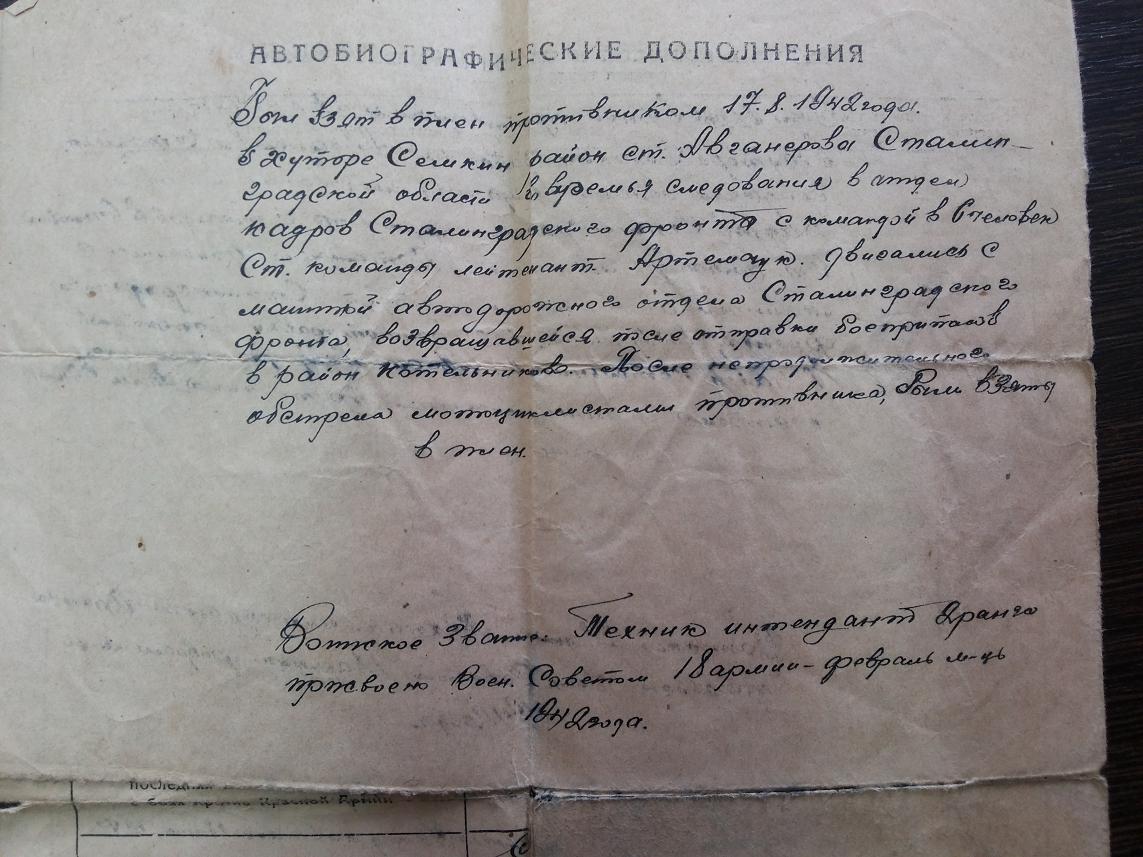 АВТОБИОГРАФИЧЕСКИЕ ДОПОЛНЕНИЯ
Был взят в плен противником 17.8.1942 года.
в хуторе Семкин район ст. Авганерова Сталин-
градской области в время следования в отдел
кадров Сталинградского фронта с командой в 6 человек
Ст. команды лейтенант Артемчук. Двигались с
машиной автодорожного отдела Сталинградского
фронта, возвращавшейся после отправки боеприпасов
в район Котельниково. После непродолжительного
обстрела мотоциклистами противника, были взяты
в плен.
Воинское звание. Техник интендант 2 ранга
присвоено Воен. Советом 18 армии - февраль м-ць
1942 года.
последняя
в боях против Красной Армии